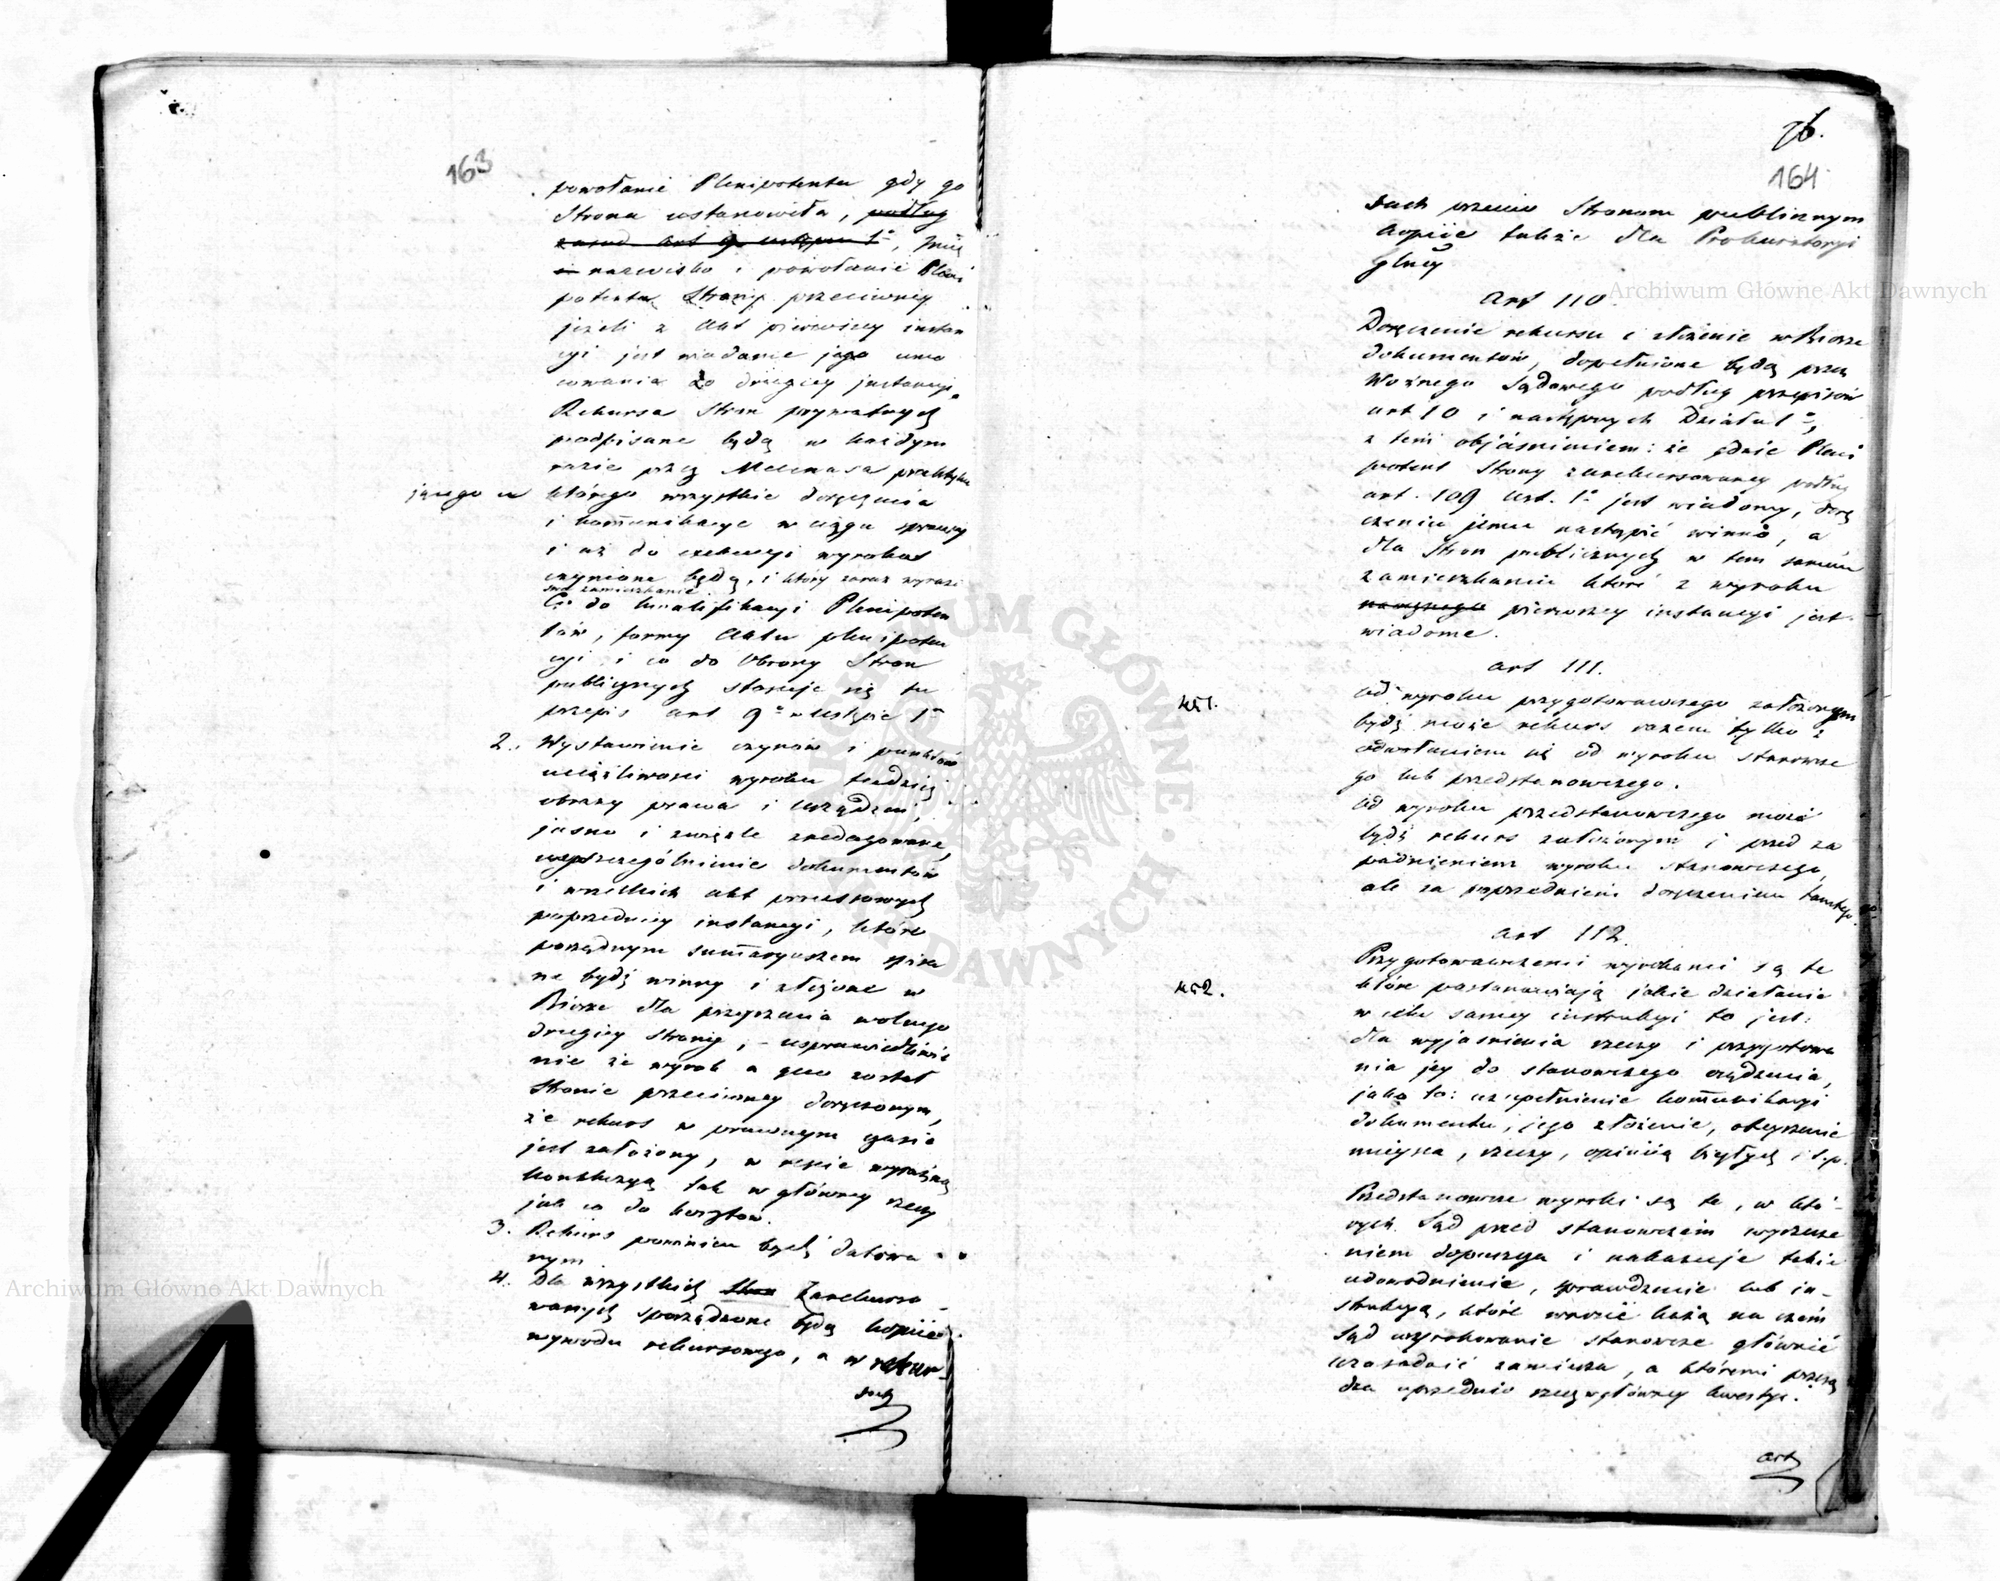 163
powołanie Plenipotenta gdy go
Strona ustanowiła, podług
zasad art 9. ustępu 1°, Imię
i nazwisko i powołanie Pleni
potenta Strony przeciwney
jeżeli z Akt pierwszey instan
cyi jest wiadome jego umo
cowanie do drugiey instancyi.
Rekursa Stron prywatnych
podpisane będą w każdym
razie przez Mecenasa praktyku
jącego u którego wszystkie doręczenia
i kom̄unikacye w ciągu sprawy
i aż do exekucyi wyroku
czynione będą, i który zaraz wyrazi
swe zamieszkanie.
Co do kwalifikacyi Plenipoten
tów, formy Aktu plenipoten
cyi i co do Obrony Stron
publicznych stosuje się tu
przepis art 9° ustępie 1°
2. Wystawienie czynów i punktów
uciążliwości wyroku tudzież
obrazy prawa i urządzeń,
jasno i zwięźle zredagowane,
wyszczególnienie dokumentów
i wszelkich akt processowych
poprzedniey instancyi, które
porządnym sum̄aryuszem spisa
ne bydź winny i złożone w
Biórze dla przeyrzenia wolnego
drugiey Strony, – usprawiedliwie
nie że wyrok a quo został
Stronie przeciwney doręczonym,
że rekurs w prawnym czasie
jest założony, w reście wyraźną
konkluzyą tak w główney rzeczy
jak co do kosztów.
3. Rekurs powinien bydź datowa
nym.
4. Dla wszystkich Stron Zarekurso
wanych sporządzone będą kopiie
wywodu rekursowego, a w rekur-
sach
76.
164
sach przeciw Stronom publicznym
kopiie także dla Prokuratoryi
Glney
Art 110.
Doręczenie rekursu i złożenie w Biórze
dokumentów, dopełnione będą przez
Woźnego Sądowego podług przepisów
art 10 i następnych Działu 1°,
z tem objaśnieniem: że gdzie Pleni
potent Strony zarekursowaney podług
art. 109 ust. 1° jest wiadomy, dorę
czenie jemu nastąpić winno, a
dla Stron publicznych w tem samem
zamieszkaniu które z wyroku
pierwszey instancyi jest
wiadome.
art 111.
451. Od wyroku przygotowawczego założonym
bydź może rekurs razem tylko z
odwołaniem się od wyroku stanowcze
go lub przedstanowczego.
Od wyroku przedstanowczego może
bydź rekurs założonym i przed za
padnieniem wyroku stanowczego,
ale za poprzedniem doręczeniem tamtego.
art 112.
452. Przygotowawczemi wyrokami są te
które postanawiają jakie działanie
w celu samey instrukcyi to jest:
dla wyjaśnienia rzeczy i przygotowa
nia jey do stanowczego osądzenia,
jako to: uzupełnienie kom̄unikacyi
dokumentu, jego złożenie, obeyrzenie
mieysca, rzeczy, opinią biegłych i t.p.
Przedstanowcze wyroki są te, w któ-
rych Sąd przed stanowczem wyrzecze
niem dopuszcza i nakazuje takie
udowodnienie, sprawdzenie lub in-
strukcyą, które wnosić każą na czem
Sąd wyrokowanie stanowcze głównie
uzasadnić zamierza, a któremi przesą
dza uprzednio rzecz główney kwestyi.
art
Archiwum Główne Akt Dawnych
Archiwum Główne Akt Dawnych
ARCHIWUM GŁÓWNE AKT DAWNYCH